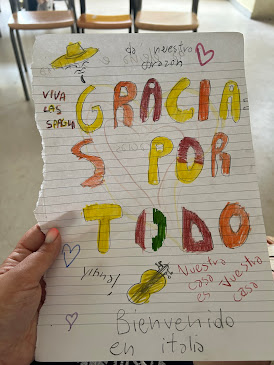 de nuestro
corazon
VIVA
LAS
SPAGNA
GRACIA
S POR
TODO
Nuestra
casa
es
Nuestra
casa
Bienvenido
en italia